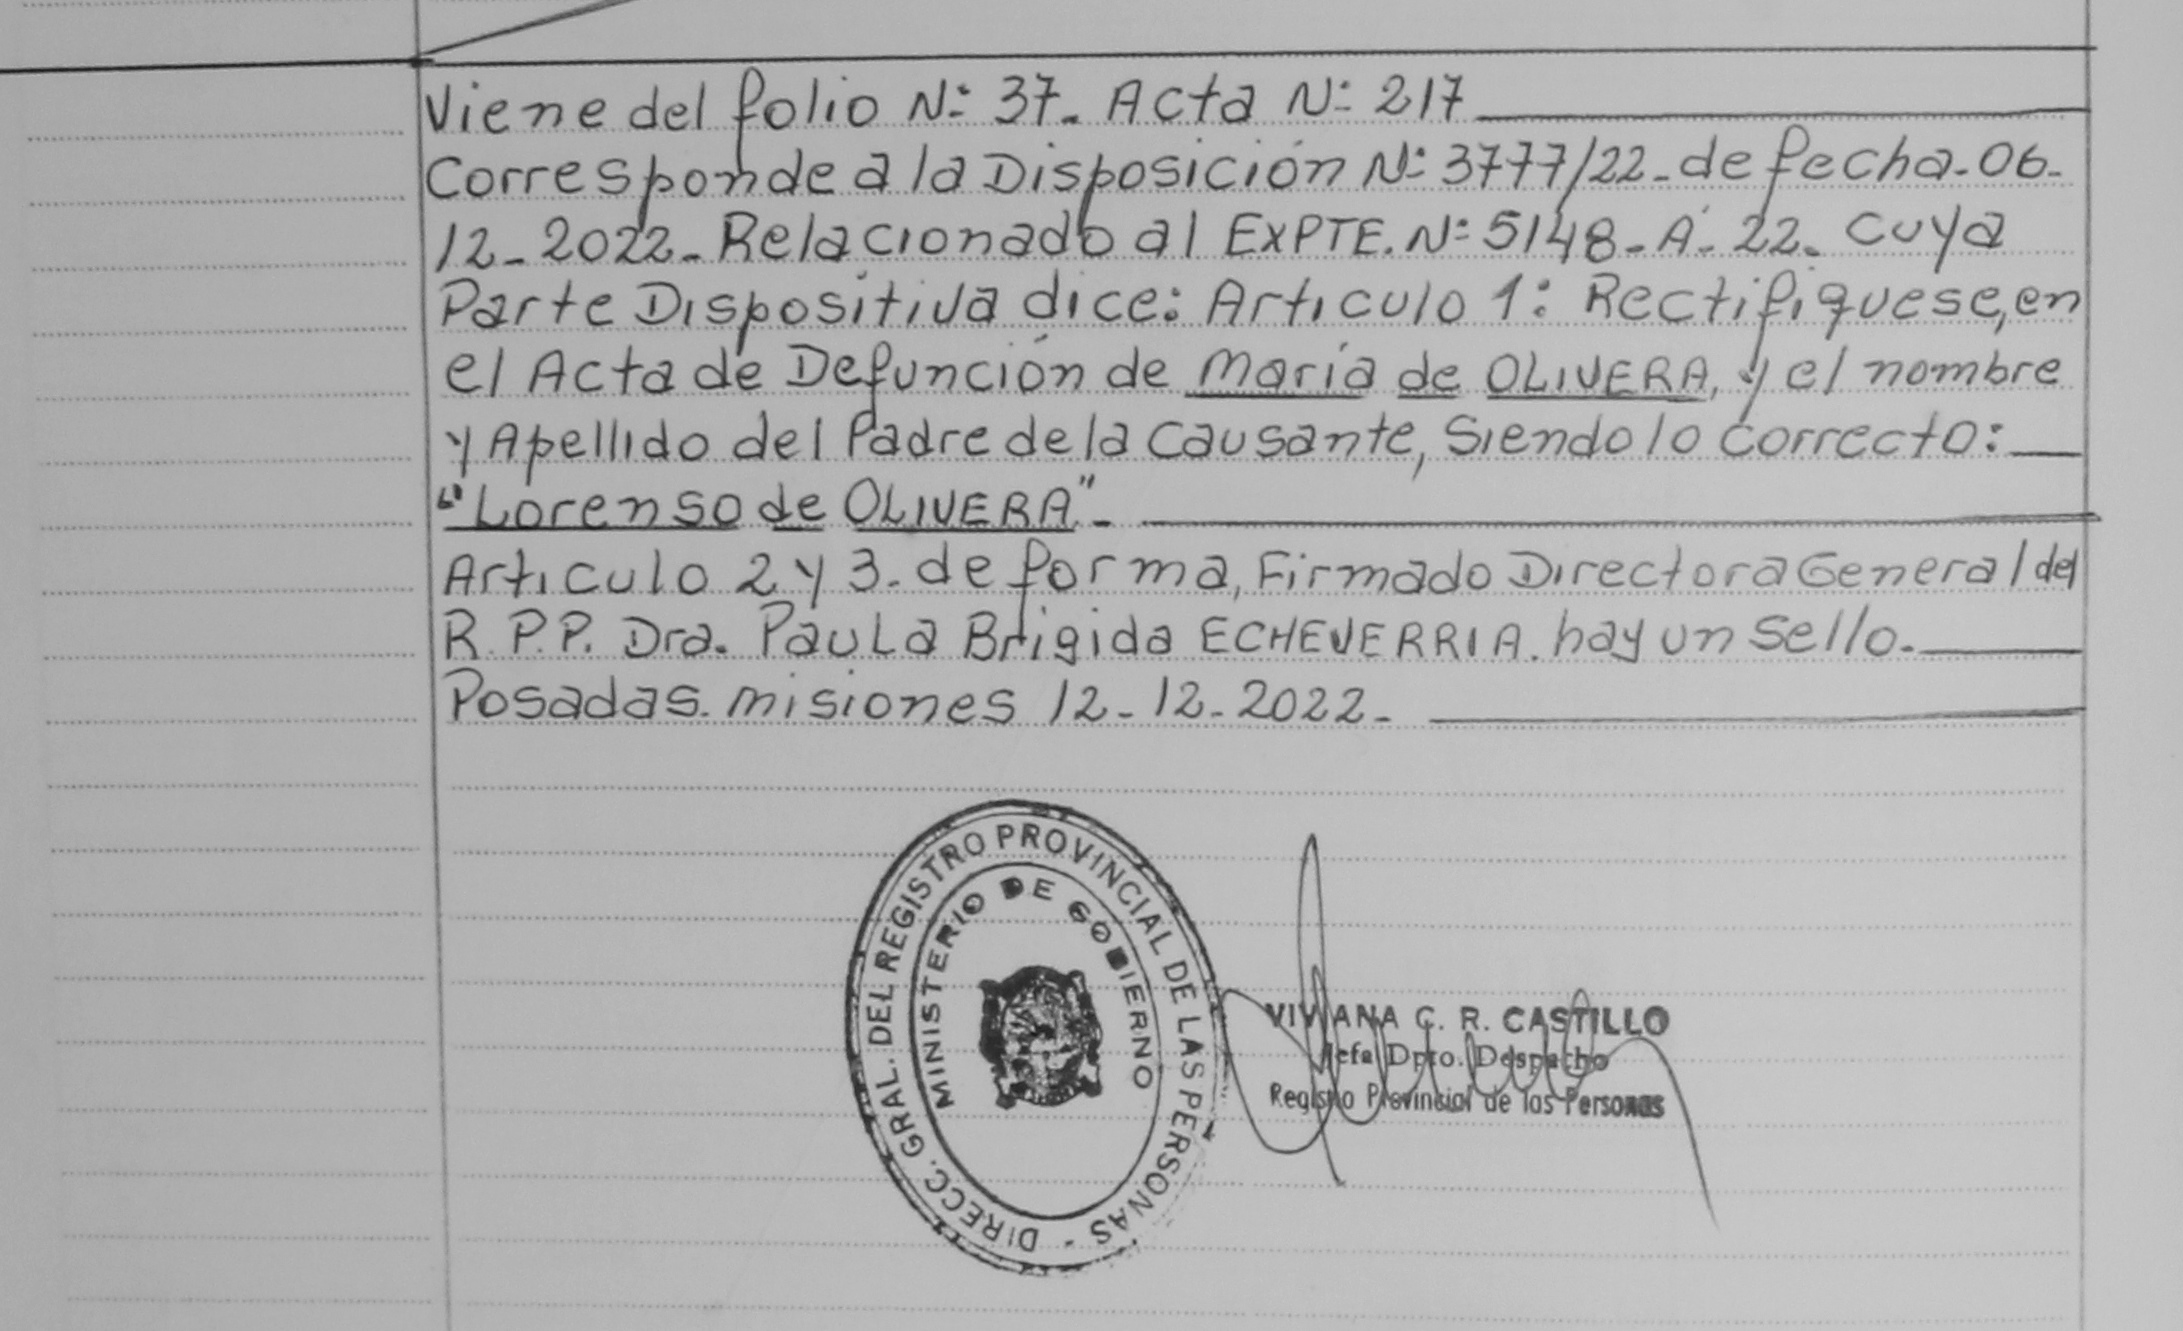 Viene del folio N: 37. Acta N: 217
Corresponde a la Disposición N: 3777/22-de fecha-06-
12-2022-Relacionado al EXPTE. N: 5148-A-22. Cuya
Parte Dispositiva dice: Articulo 1: Rectifiquese, en
el Acta de Defunción de María de OLIVERA, y el nombre
y Apellido del Padre de la Causante, Siendo lo Correcto:
"Lorenso de OLIVERA"-
Articulo 2 y 3. de forma, Firmado Directora General del
R.P.P. Dra. Paula Brigida ECHEVERRIA. hay un Sello.
Posadas. misiones 12-12-2022-
DIRECC. GRAL. DEL REGISTRO PROVINCIAL DE LAS PERSONAS -
MINISTERIO DE GOBIERNO
VIVIANA C. R. CASTILLO
Jefa Dpto. Despacho
Registro Provincial de las Personas